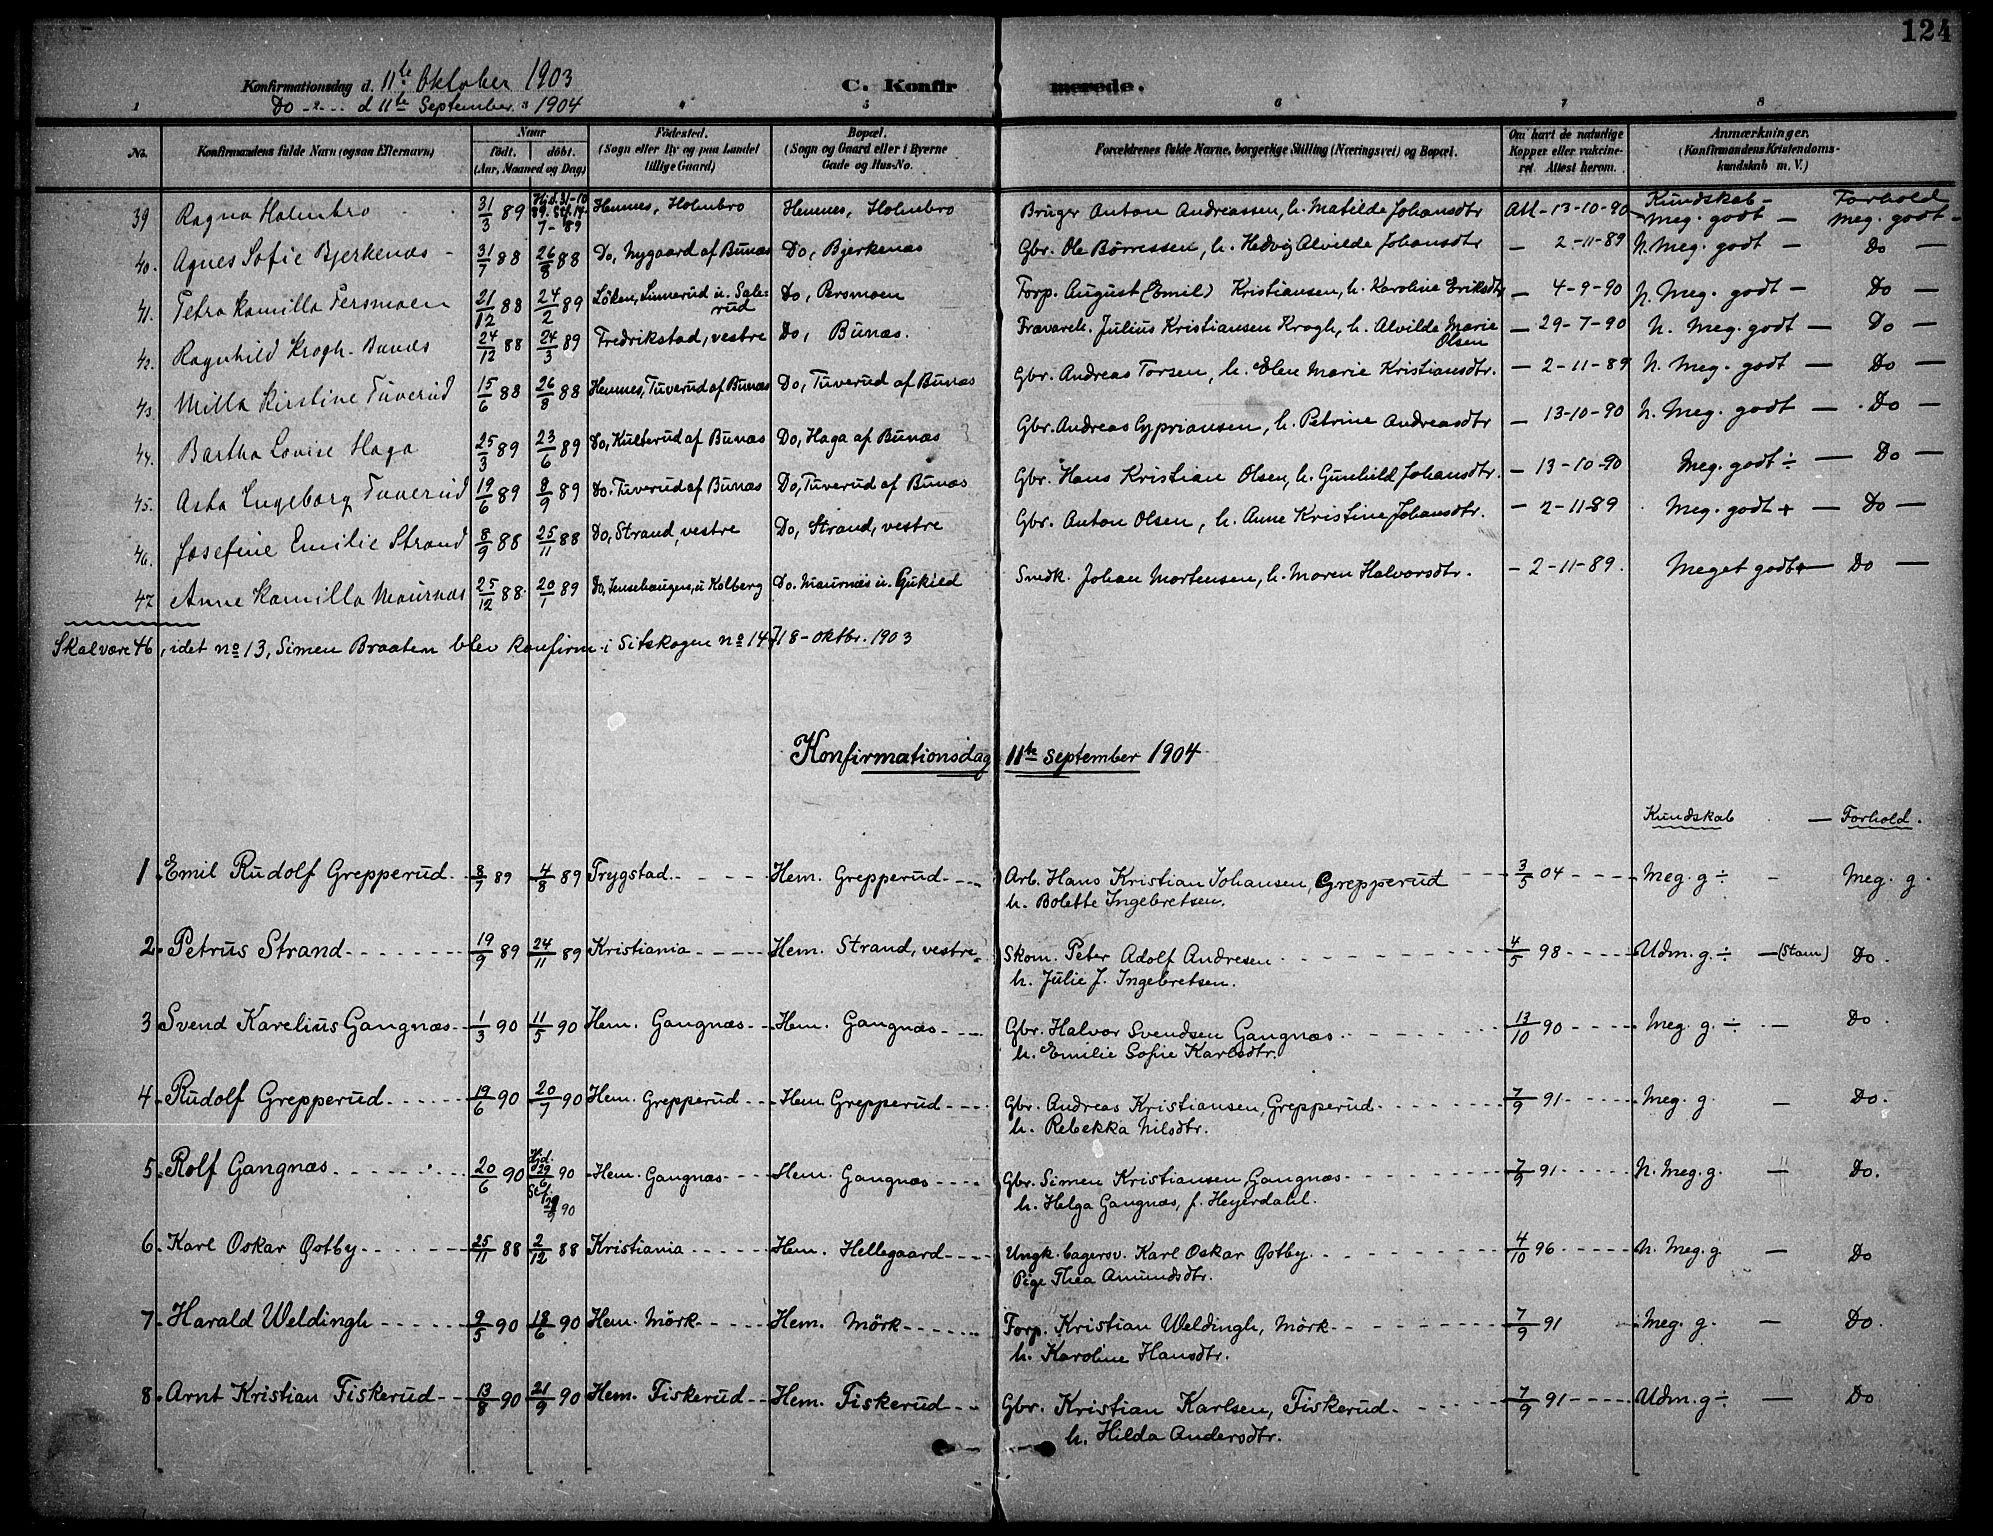 124
Konfirmationsdag d. 11te Oktober 1903
C. Konfirmerede.
Do - " - d 11te September 1904
1 4 5 6 7 8
No. Konfirmandens fulde Navn (ogsaa Efternavn) Naar født. døbt. (Aar, Maaned og Dag) Fødested. (Sogn eller By og paa Landet tillige Gaard) Bopæl. (Sogn og Gaard eller i Byerne Gade og Hus-No. Forældrenes fulde Navne, borgerlige Stilling (Næringsvei) og Bopæl. Om havt de naturlige Kopper eller vaccineret. Attest herom. Anmærkninger. (Konfirmandens Kristendomskundskab m. V.)
Kundskab - Forhold
39 Ragna Holmbro 31/3 89 Hjd. 31-10 89. St. 14-7-89 Hemnes, Holmbro Hemnes, Holmbro Bruger Anton Andreassen, h. Matilde Johansdtr Att - 13-10-90 Meg. godt - Meg. godt -
40. Agnes Sofie Bjerkenæs - 31/7 88 26/8 88 Do, Nygaard af Bunæs Do, Bjerkenæs Gbr. Ole Børressen, h. Hedvig Alvilde Johansdtr - 2-11-89 N. Meg. godt - Do -
41. Petra Kamilla Persmoen 21/12 88 24/2 89 Löken, Linnerud u. Salerud Do, Persmoen Forp. August (Emil) Kristiansen, h. Karoline Eriksdtr - 4-9-90 N. Meg. godt - Do -
42. Ragnhild Krogh - Bunæs 24/12 88 24/3 89 Fredrikstad, vestre Do, Bunæs. Julius Kristiansen Krogh, h. Alvilde Marie Olsen - 29-7-90 N. Meg. godt - Do -
43 Milla Kirstine Tuverud 15/6 88 26/8 88 Hemnes, Tuverud af Bunæs Do, Tuverud af Bunæs Gbr. Andreas Torsen, h. Elen Marie Kristiansdtr. - 2-11-89 N. Meg. godt - Do -
44. Bartha Lovise Haga 25/3 89 23/6 89 Do, Kulterud af Bunæs Do, Haga af Bunæs Gbr. Andreas Cypriansen, h. Petrine Andreasdtr - 13-10-90 N. Meg. godt - Do -
45. Asta Engeborg Tuverud 19/6 89 8/9 89 Do. Tuverud af Bunæs Do, Tuverud af Bunæs Gbr. Hans Kristian Olsen, h. Gunhild Johansdtr. - 13-10-90 Meg. godt ÷ - Do -
46. Josefine Emilie Strand 8/9 88 25/11 88 Do, Strand, vestre Do, Strand, vestre Gbr. Anton Olsen, h. Anne Kristine Johansdtr. - 2-11-89 Meg. godt + - Do -
47. Anne Kamilla Maurnæs 25/12 88. 20/1 89 Do, Jensehaugen, u Kolberg Do. Maurnæs u. Gukild Smdk. Johan Mortensen, h. Maren Halvorsdtr. - 2-11-89. Meget godt+ - Do -
Skal være 46, idet no 13, Simen Braaten blev konfirm. i Sitskogen no 14 18-oktbr. 1903
Konfirmationsdag 11te September 1904
Kundskab - Forhold.
1 Emil Rudolf Grepperud 8/7 89 4/8 89 Trygstad Hem. Grepperud Arb. Hans Kristian Johansen, Grepperud 3/5 04 Meg. g ÷ - Meg. g.
h. Bolette Ingebretsen.
2. Petrus Strand 19/9 89 24/11 89 Kristiania Hem. Strand, vestre Skom. Peter Adolf Andresen 4/5 98 Udm. g. ÷ - (Stam) Do.
h. Julie J. Ingebretsen.
3 Svend Karelius Gangnæs 1/3 90 11/5 90 Hem. Gangnæs Hem. Gangnæs Gbr. Halvor Svendsen Gangnæs 13/10 90 Meg. g ÷ - Do.
h. Emilie Sofie Karlsdtr.
4. Rudolf Grepperud 19/6 90 20/7 90 Hem. Grepperud Hem Grepperud Gbr. Andreas Kristiansen, Grepperud 7/9 91 Meg. g. - Do.
h. Rebekka Nilsdtr.
5. Rolf Gangnæs 20/6 90 Hjd. 29/6 90 St. 29/9 90 Hem. Gangnæs Hem. Gangnæs Gbr. Simen Kristiansen, Gangnæs 7/9 91 N. Meg. g. - Do.
h. Helga Gangnæs, f. Heyerdahl.
6. Karl Oskar Gotby 25/11 88 2/12 88 Kristiania Hem. Hellegaard Ungk. bagersv. Karl Oskar Gotby 4/10 96 N. Meg. g - Do
Pige Thea Amundsdtr.
7. Harald Weldingh 9/5 90 18/6 90 Hem. Mörk Hem. Mörk Forp. Kristian Weldingh, Mörk 7/9 91 Meg. g. - Do.
h. Karoline Hansdtr.
8. Arnt Kristian Fiskerud 13/8 90 21/9 90 Hem. Fiskerud Hem. Fiskerud Gbr. Kristian Karlsen, Fiskerud 7/9 91 Udm. g ÷ - Do
h. Hilda Andersdtr.